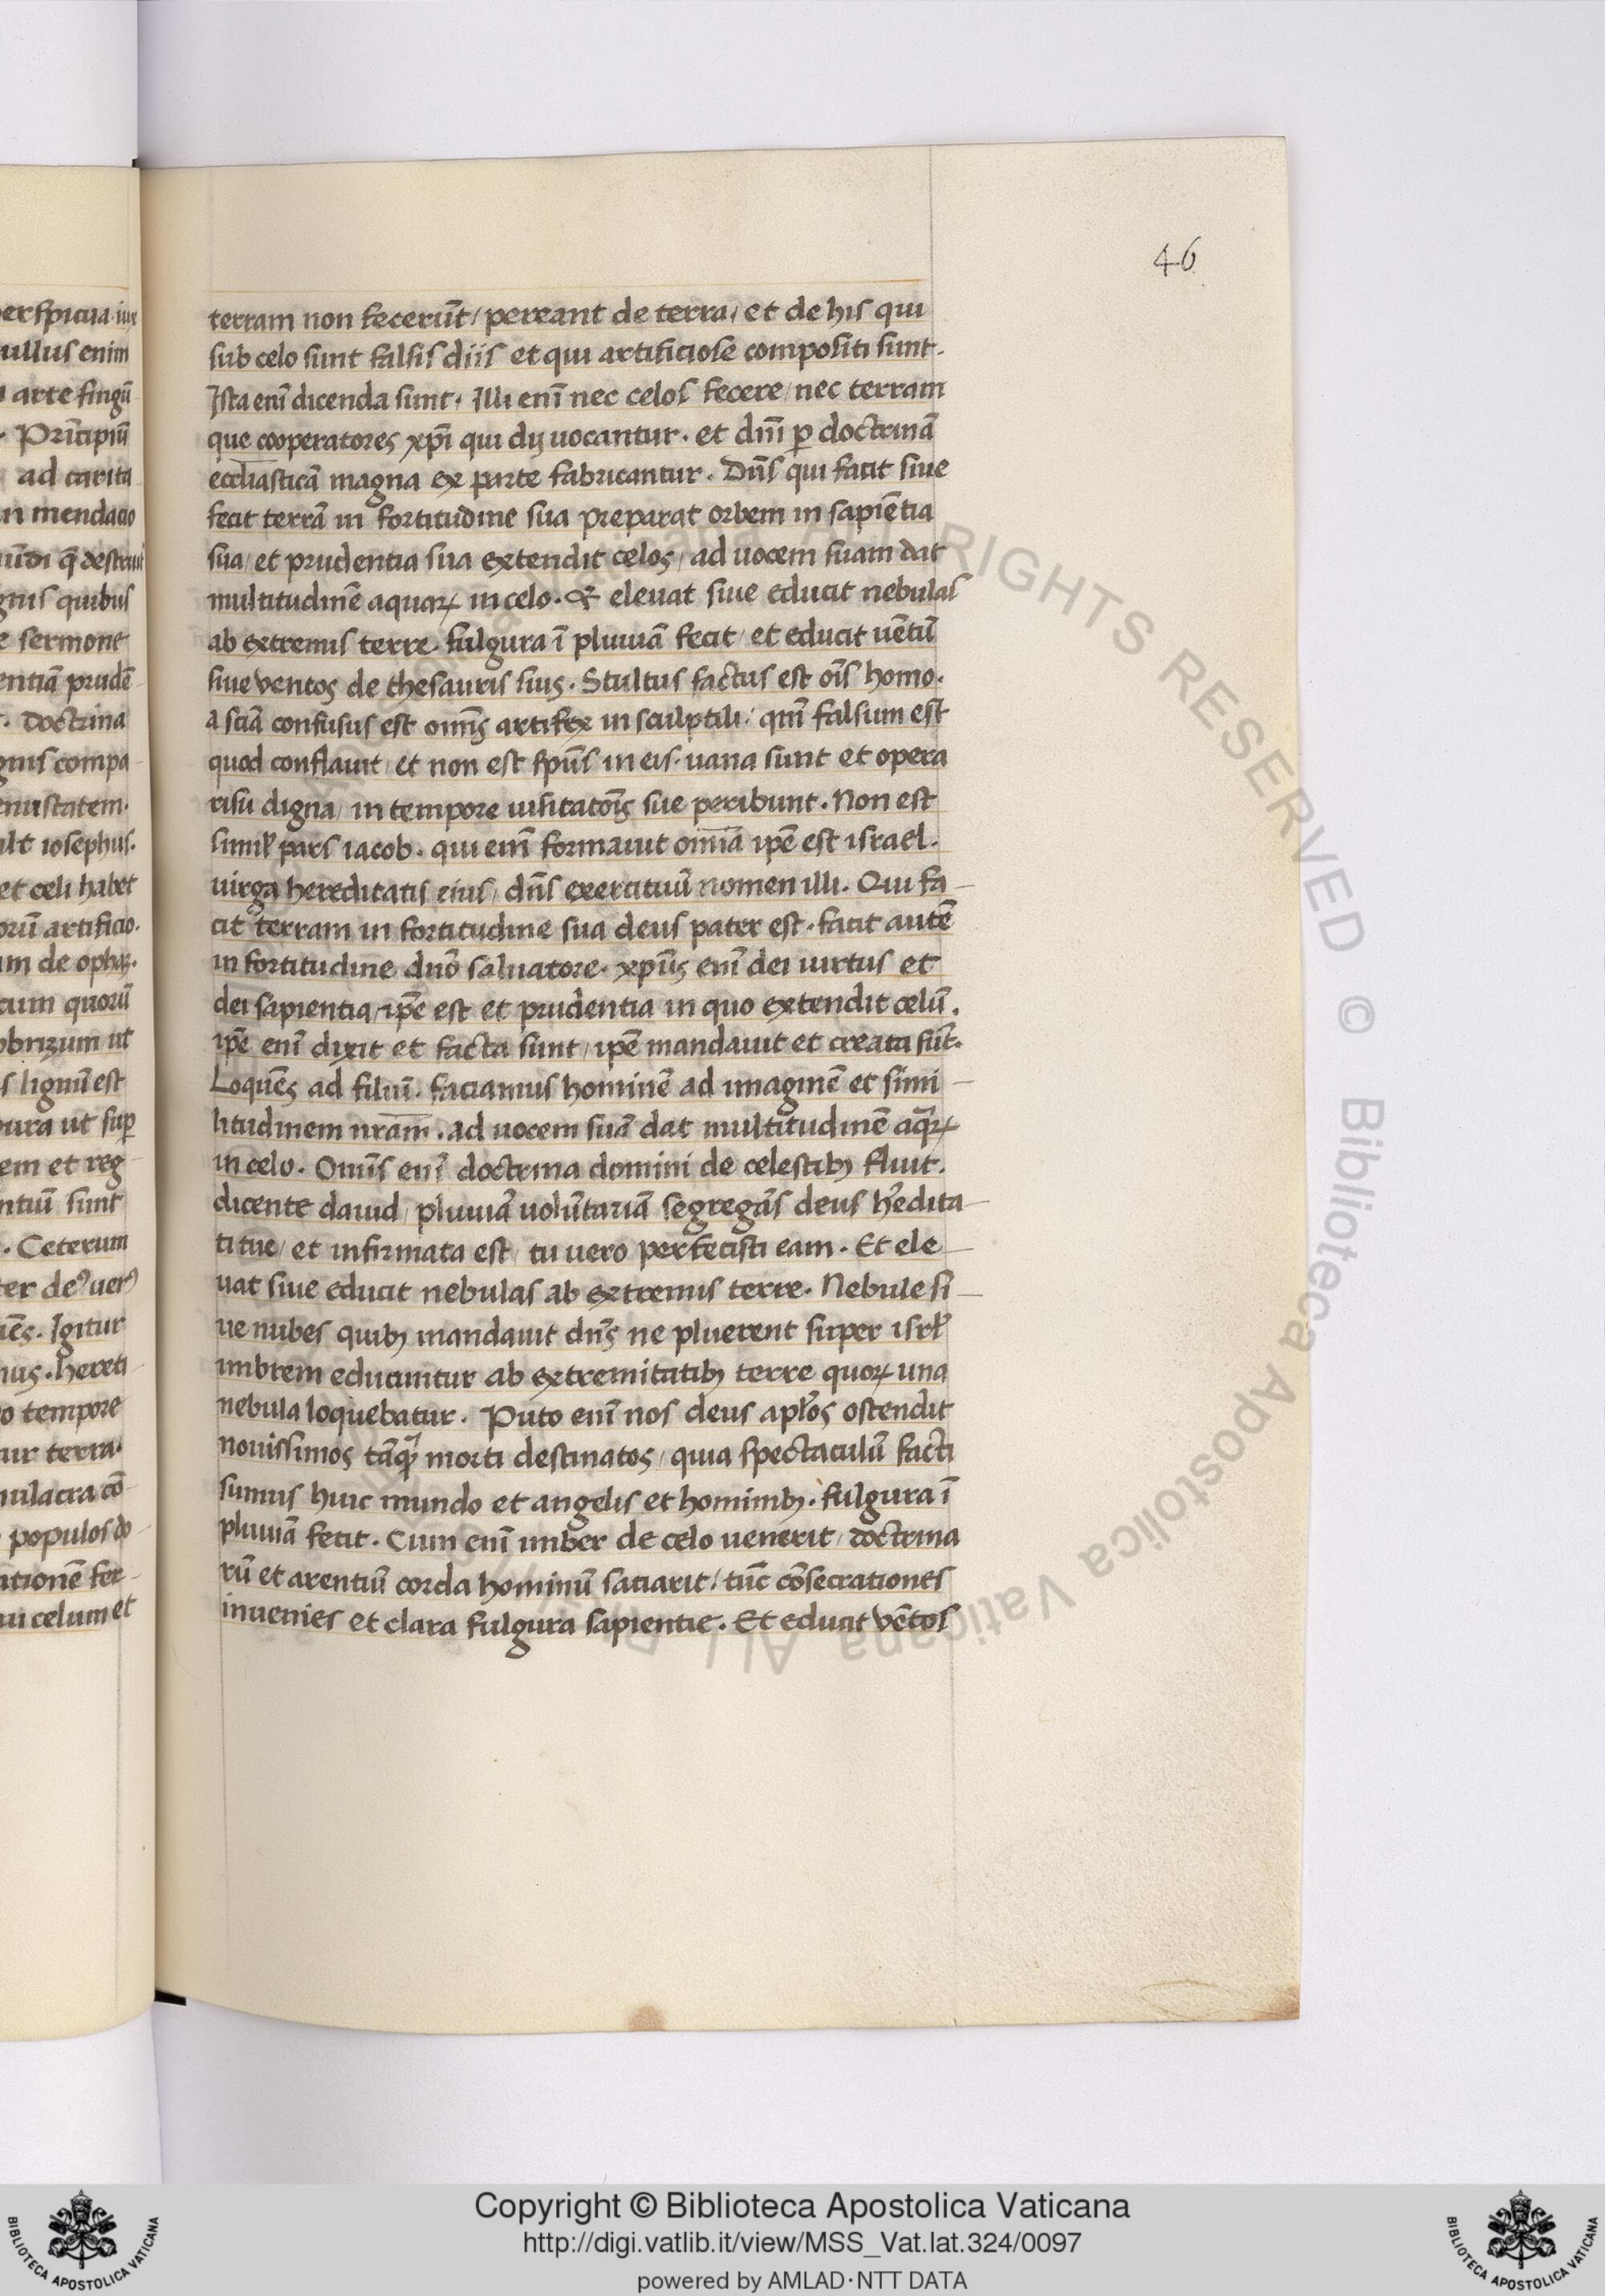 46
erspicua iux
ullus enim
arte fingū
Prīcipiū
ad carita
in mendatio
ūdi q̄ destruit
gnis quibus
e sermone
entiā prudē
doctrina
gnis compa
enustatem.
ult iosephus.
et celi habet
orū artificio.
um de ophaz.
cum quorū
obrizum ut
s lignū est
ura ut sup
em et reg
ntiū sunt
. Ceterum
ter deꝰ uerꝰ
iēs. Igitur
us. hereti
o tempore
ur terra.
mulacra cō
populos do
ationē fer
ui celum et
terram non fecerūt/ pereant de terra/ et de his qui
sub celo sunt falsis diis et qui artificiose compositi sunt.
Ista enī dicenda sunt. Illi enī nec celos fecere/ nec terram
que cooperatores xp̄i qui dij uocantur. et dn̄i ꝑ doctrinā
eccl̄iasticā magna ex parte fabricantur. Dn̄s qui facit siue
fecit terrā in fortitudine sua preparat orbem in sapiētia
sua/ et prudentia sua extendit celos/ ad uocem suam dat
multitudinē aquaꝝ in celo. & eleuat siue educit nebulas
ab extremis terre. fulgura ī pluuiā fecit/ et educit uētū
siue ventos de thesauris suis. Stultus factus est oīs homo.
a sciā confusus est omīs artifex in sculptili/ qm̄ falsum est
quod conflauit/ et non est sp̄us in eis. uana sunt et opera
risu digna/ in tempore uisitatōis sue peribunt. Non est
simil̓ pars iacob. qui enī formauit om̄ia ip̄e est israel.
uirga hereditatis eius/ dn̄s exercituū nomen illi. Qui fa-
cit terram in fortitudine sua deus pater est. facit autē
in fortitudine dn̄o saluatore. xp̄us enī dei uirtus et
dei sapientia/ ip̄e est et prudentia in quo extendit celū.
ip̄e enī dixit et facta sunt/ ip̄e mandauit et creata sūt.
Loquēs ad filiū. faciamus hominē ad imaginē et simi-
litudinem nr̄am. ad uocem suā dat multitudinē aqᵃꝝ
in celo. Omīs enī doctrina domini de celestibꝫ fluit.
dicente dauid/ pluuiā uolūtariā segregās deus h̓edita-
ti tue/ et infirmata est/ tu uero perfecisti eam. Et ele-
uat siue educit nebulas ab extremis terre. Nebule si-
ue nubes quibꝫ mandauit dn̄s ne pluerent super isrl̓
imbrem educuntur ab extremitatibꝫ terre quoꝝ una
nebula loquebatur. Puto enī nos deus apl̓os ostendit
nouissimos tāqᵃꝫ morti destinatos/ quia spectaculū facti
sumus huic mundo et angelis et hominibꝫ. fulgura ī
pluuiā fecit. Cum enī imber de celo uenerit/ doctrina
rū et arentiū corda hominū saciarit/ tūc cōsecrationes
inuenies et clara fulgura sapientie. Et educit vētos
Copyright © Biblioteca Apostolica Vaticana
http://digi.vatlib.it/view/MSS_Vat.lat.324/0097
powered by AMLAD·NTT DATA